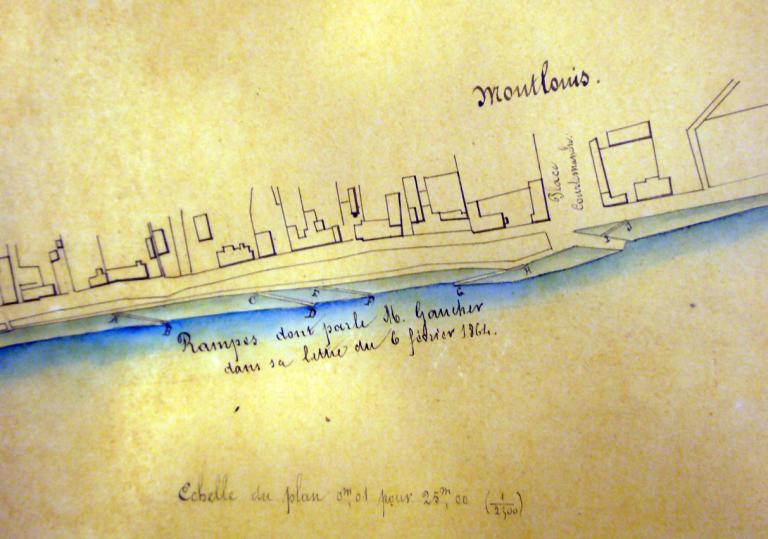 Montlouis.
Place
Courtemanche.
I J
A B
C D
E F
G H
Rampes dont parle M. Gaucher
dans sa lettre du 6 février 1864.
Echelle du plan 0,m01 pour 25m,00 (1/2500)